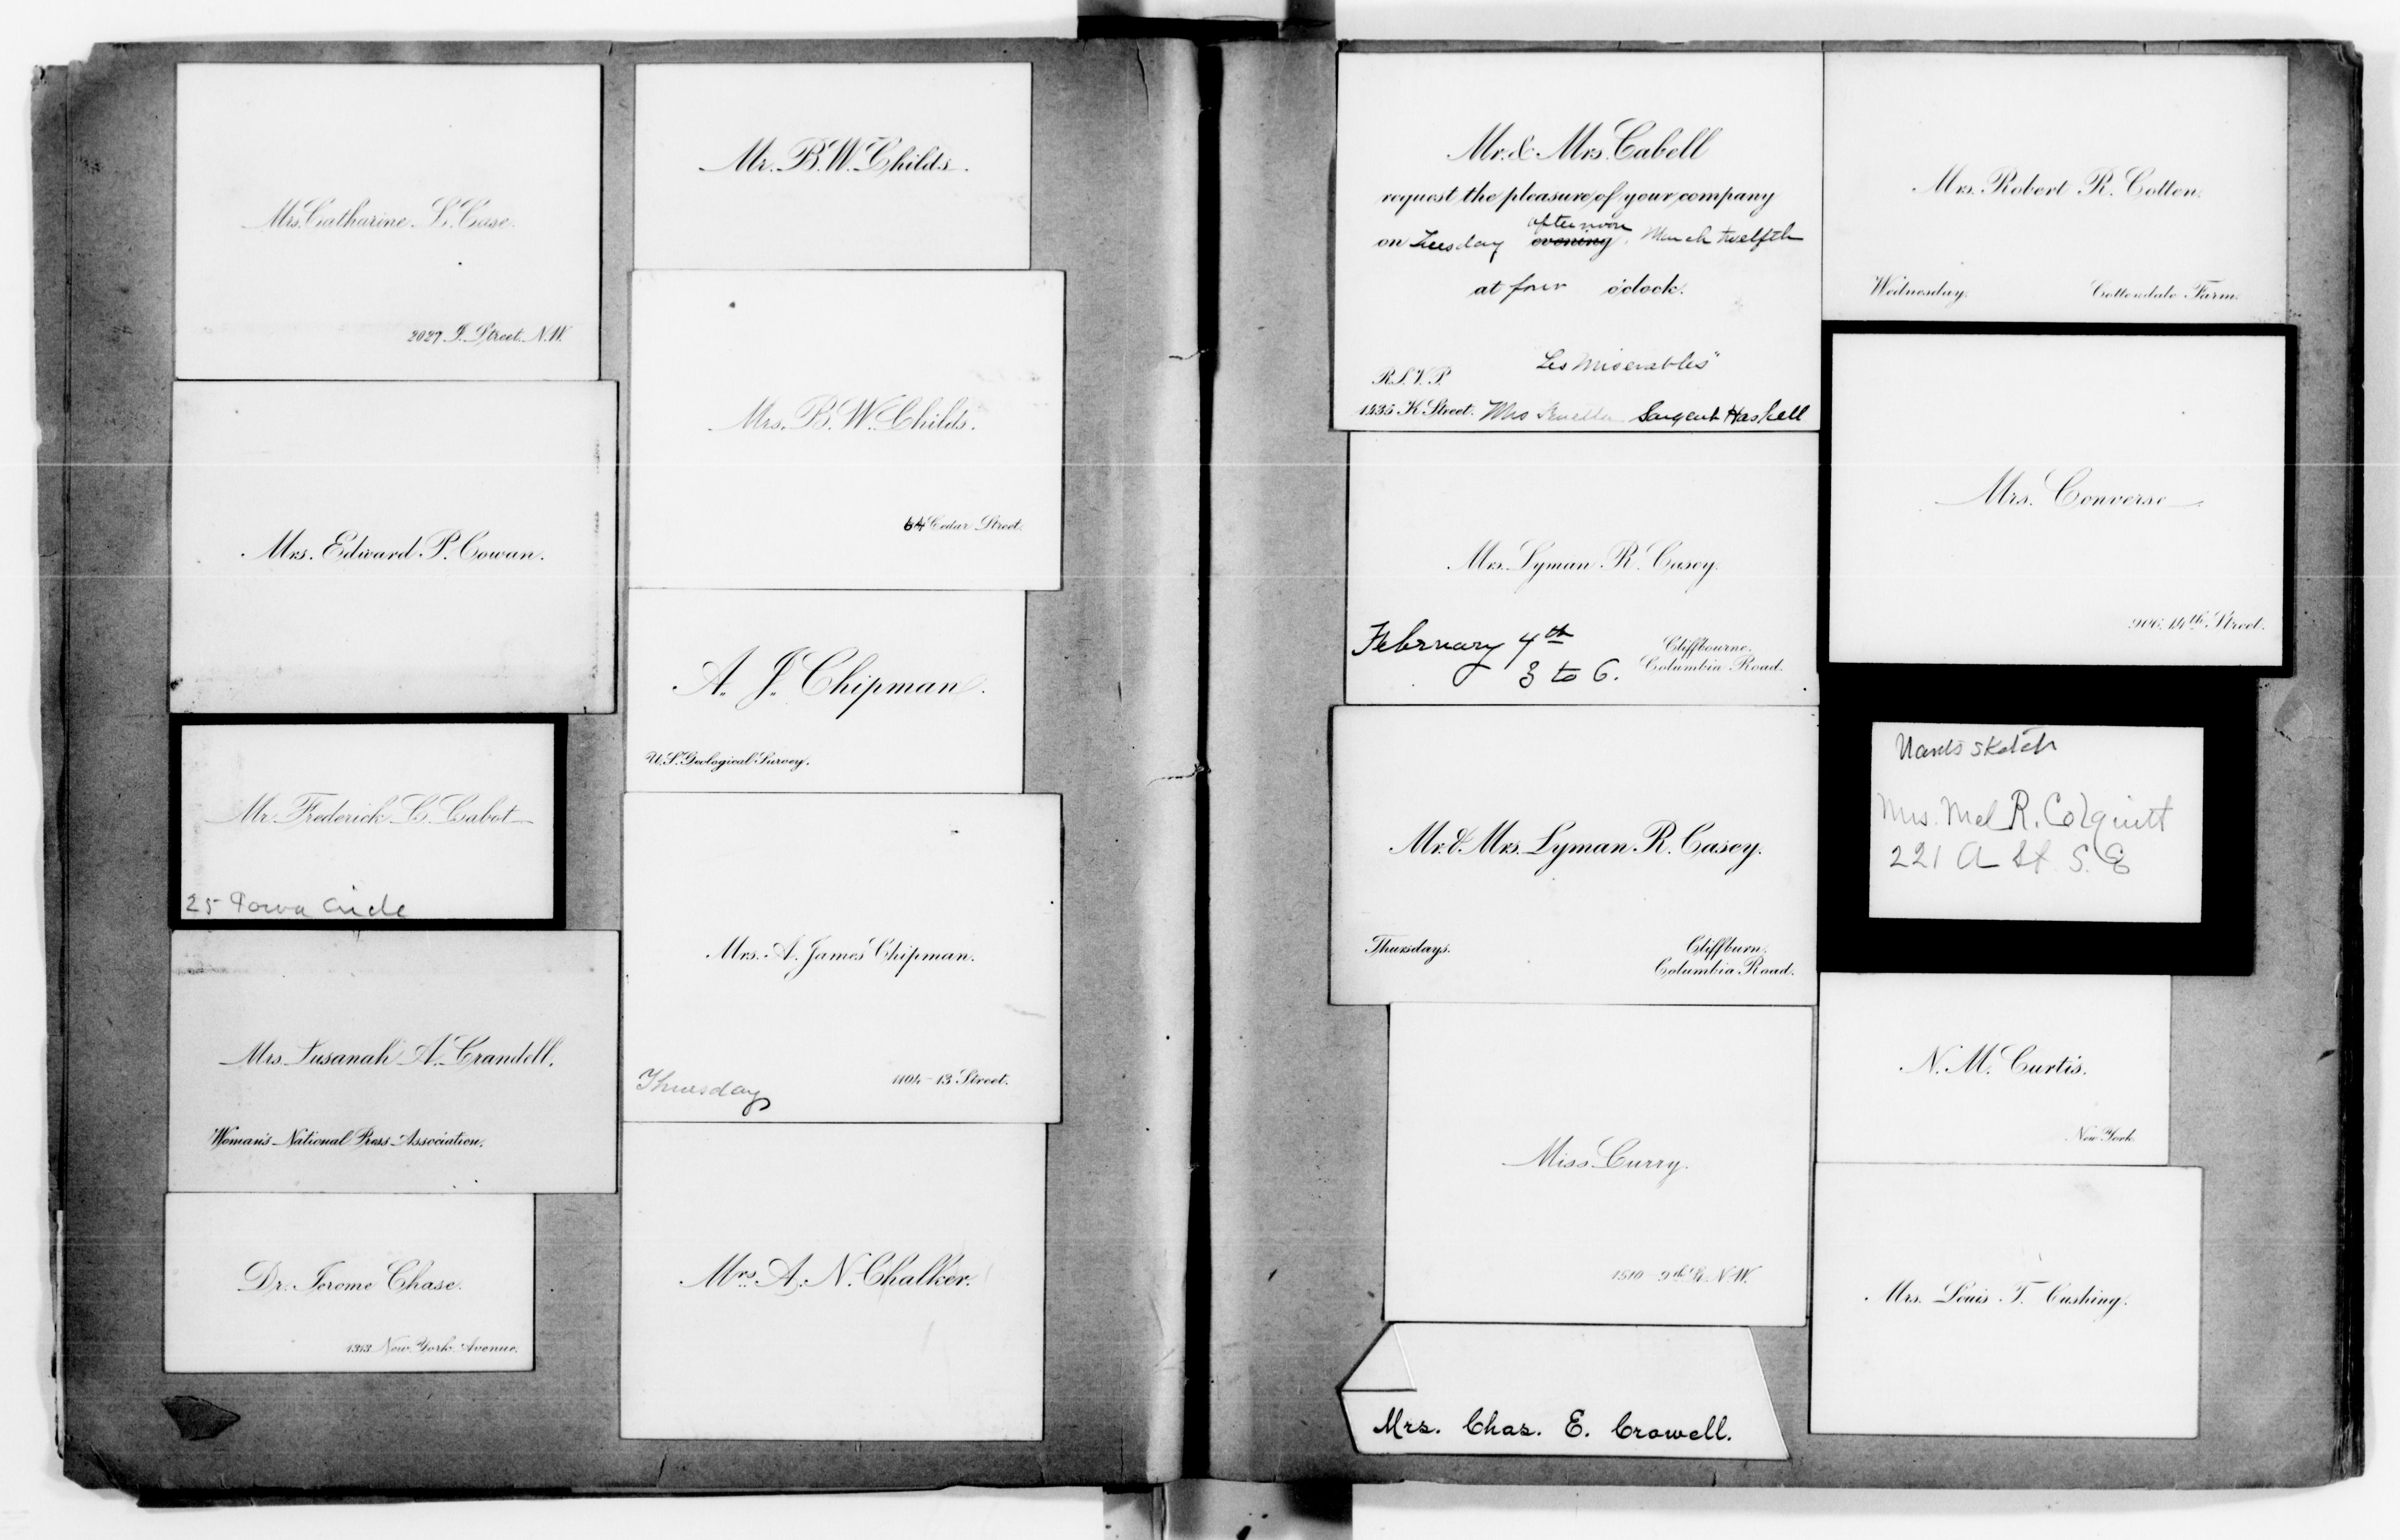 Mrs. Catharine L. Case.
2027 I. Street. N.W.
Mrs. Edward P. Cowan.
Mr. Frederick C. Cabot
25 Iowa Circle
Mrs. Susanah A. Crandell.
Woman's National Press Association.
Dr. Jerome Chase.
1313 New York Avenue.
Mr. B. W. Childs.
Mrs. B. W. Childs.
64 Cedar Street.
A. J. Chipman.
U.S. Geological Survey.
Mrs. A. James Chipman.
Thursday
1104 - 13 Street.
Mrs. A. N. Chalker.
Mr. & Mrs. Cabell
request the pleasure of your company
afternoon
on Tuesday evening, March twelfth
at four o'clock.
"Les Miserables"
R.S.V.P.
1435 K Street. Mrs Sargent Haskell
Mrs. Lyman R. Casey.
February 4th
3 to 6.
Cliffbourne.
Columbia Road.
Mr. & Mrs. Lyman R. Casey.
Thursdays.
Cliffburn.
Columbia Road.
Miss Curry.
1510 - 9th St. N.W.
Mrs. Chas. E. Crowell.
Mrs. Robert R. Cotten.
Wednesday.
Cottendale Farm.
Mrs. Converse
906. 14th Street.
sketch
Mrs. Mel R. Colquitt
221 A St. S.E
N. M. Curtis.
New York.
Mrs. Louis T. Cushing.